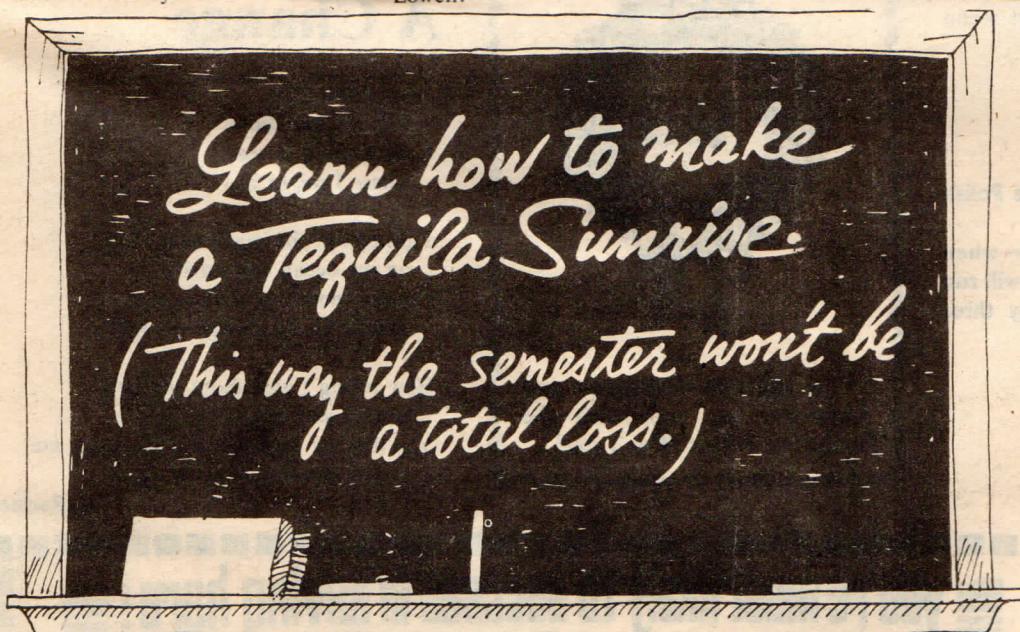 Lowell.
Learn how to make
a Tequila Sunrise.
(This way the semester won't be
a total loss.)